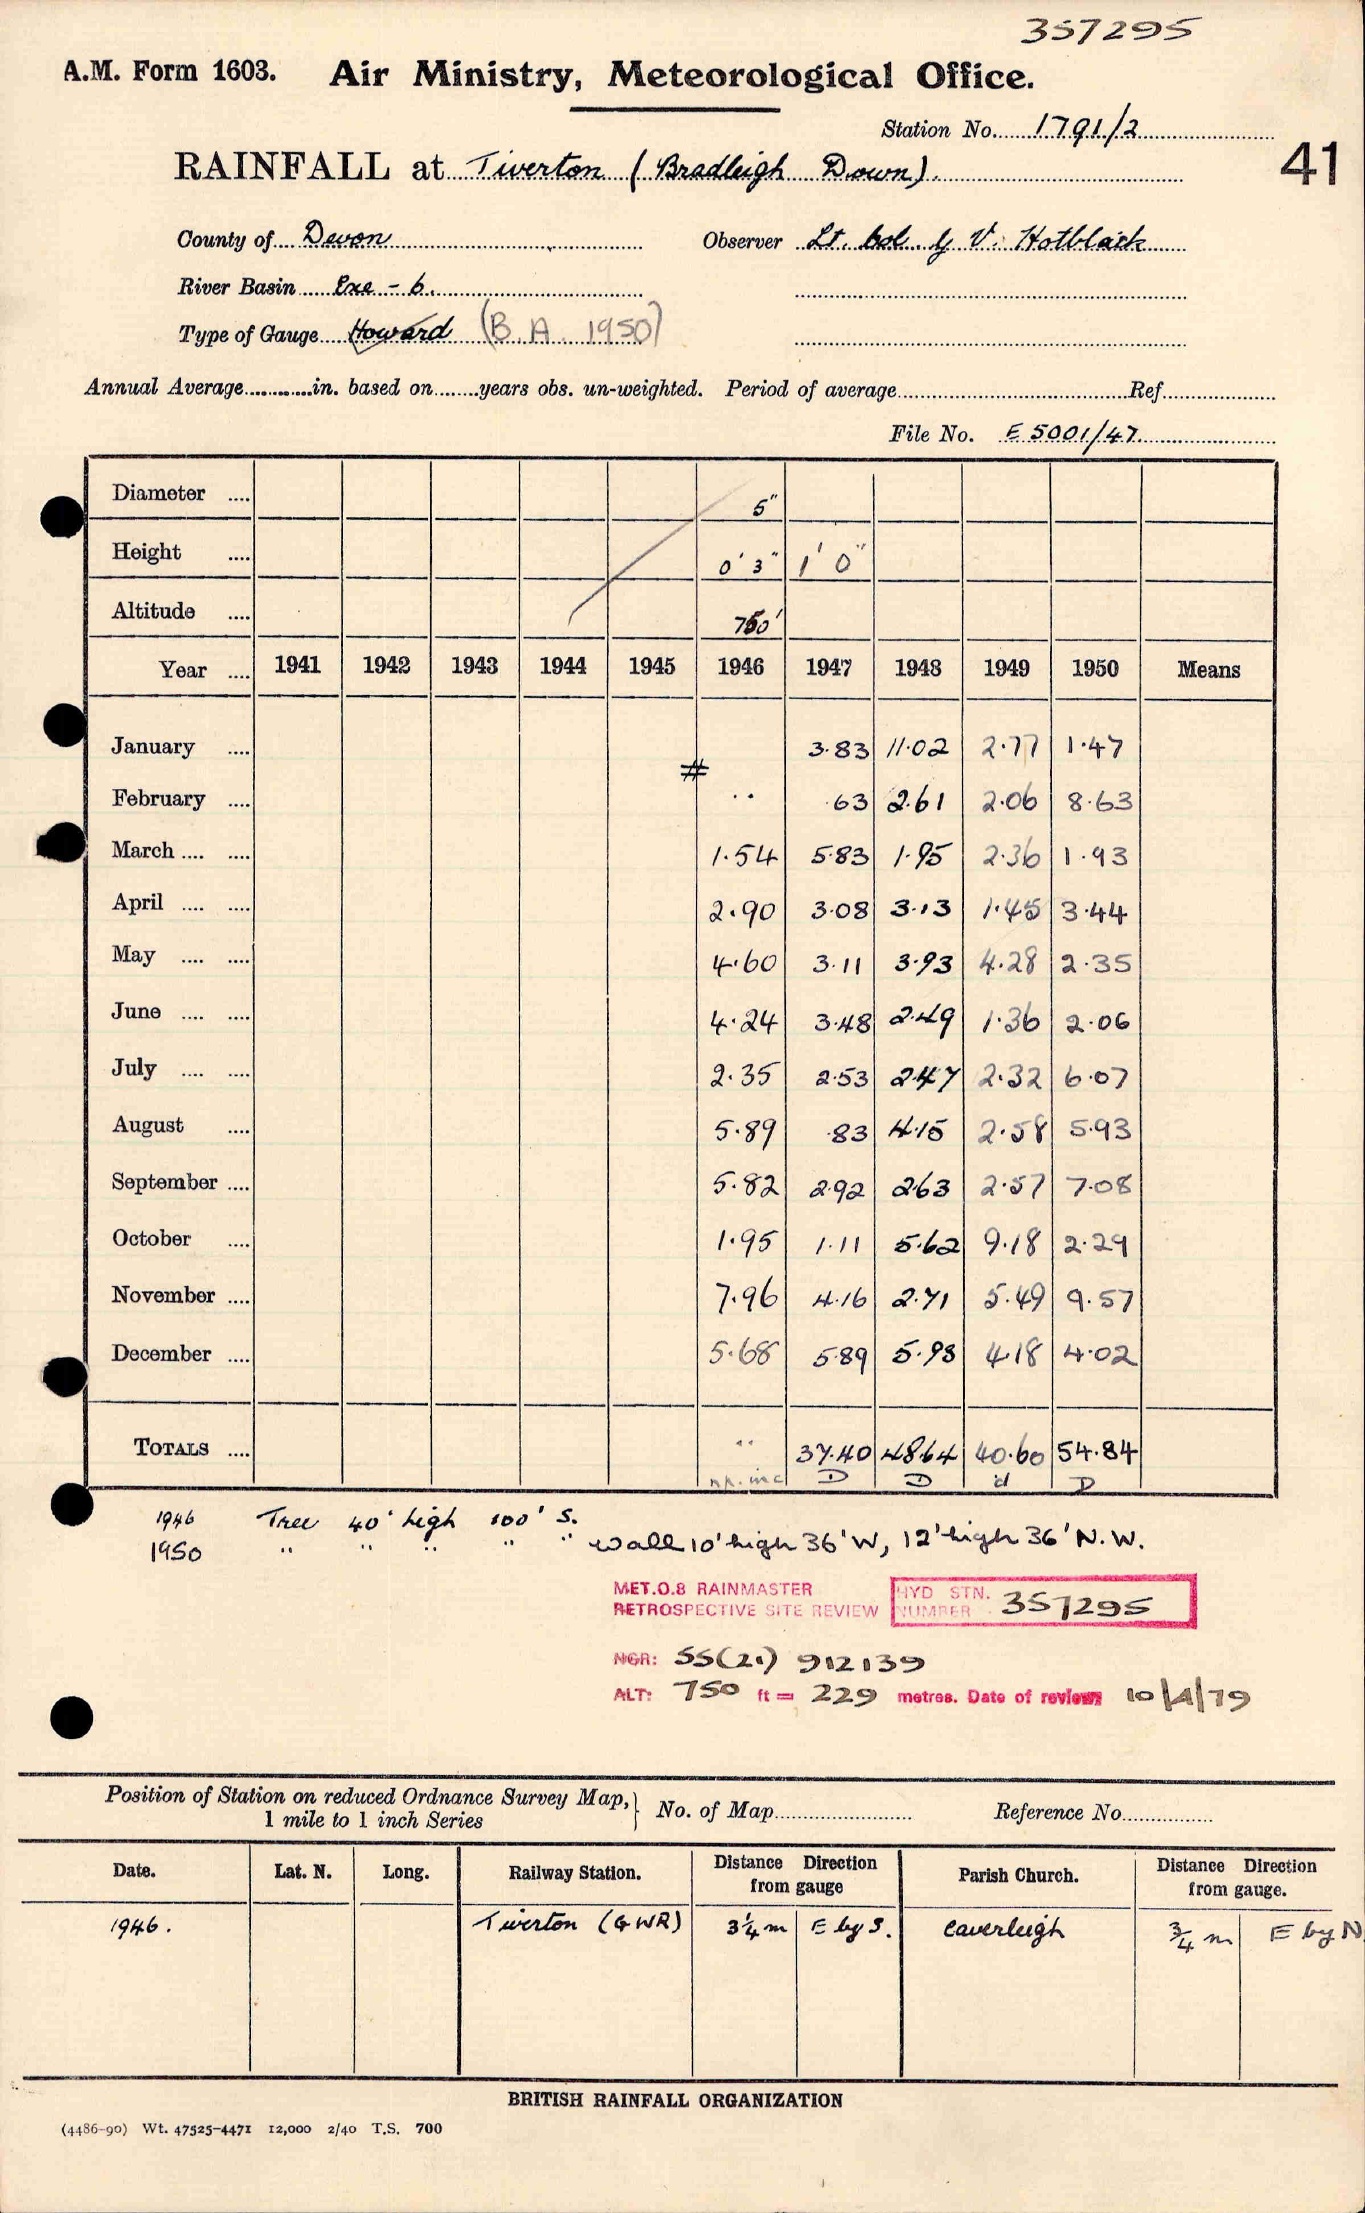 357295
A.M. Form 1603. Air Ministry, Meteorological Office.
Station No. 1791/2
41
RAINFALL at Tiverton (Bradleigh Down).
County of Devon Observer Lt. Col. G V. Hotblack
River Basin Exe - 6.
Type of Gauge Howard (B A. 1950)
Annual Average............in. based on........years obs. un-weighted. Period of average........Ref........
File No. E 5001/47
Diameter .... 5"
Height .... 0' 3" 1' 0"
Altitude .... 750'
Year .... 1941 1942 1943 1944 1945 1946 1947 1948 1949 1950 Means
January .... 3.83 11.02 2.77 1.47
#
February .... .. .63 2.61 2.06 8.63
March .... .... 1.54 5.83 1.95 2.36 1.93
April .... .... 2.90 3.08 3.13 1.45 3.44
May .... .... 4.60 3.11 3.93 4.28 2.35
June .... .... 4.24 3.48 2.49 1.36 2.06
July .... .... 2.35 2.53 2.47 2.32 6.07
August .... 5.89 .83 4.15 2.58 5.93
September .... 5.82 2.92 2.63 2.57 7.08
October .... 1.95 1.11 5.62 9.18 2.29
November .... 7.96 4.16 2.71 5.49 9.57
December .... 5.68 5.89 5.93 4.18 4.02
TOTALS .... .. 37.40 48.64 40.60 54.84
inc D D d D
1946 Tree 40' high 100' S.
1950 " " " " " Wall 10' high 36' W, 12' high 36' N.W.
MET.O.8 RAINMASTER
RETROSPECTIVE SITE REVIEW
HYD STN. NUMBER 357295
NGR: SS(21) 912139
ALT: 750 ft = 229 metres. Date of review 10/4/79
Position of Station on reduced Ordnance Survey Map,
1 mile to 1 inch Series
No. of Map........ Reference No........
Date. Lat. N. Long. Railway Station. Distance Direction from gauge Parish Church. Distance Direction from gauge.
1946. Tiverton (GWR) 3¼ m E by S. Calverleigh ¾ m E by N
BRITISH RAINFALL ORGANIZATION
(4486-90) Wt. 47525-4471 12,000 2/40 T.S. 700